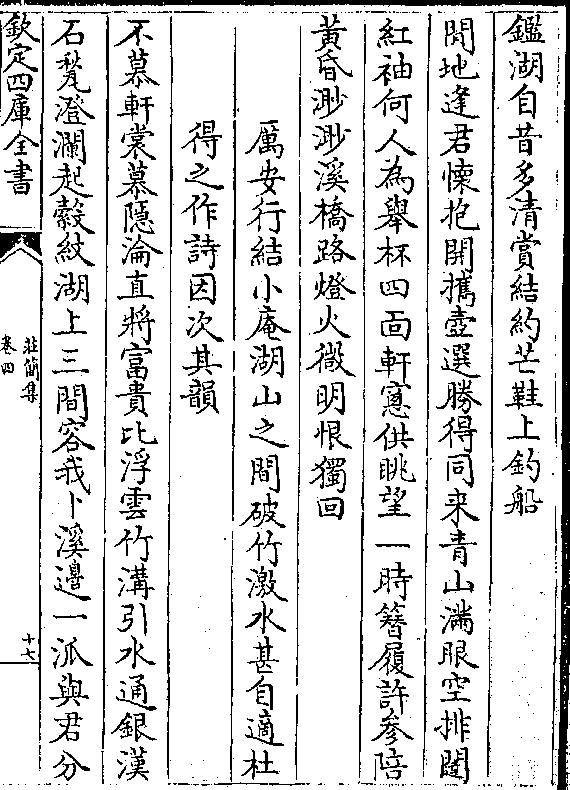 鑑湖自昔多清賞結約芒鞋上釣船
閒地逢君懐抱開攜壺選勝得同来青山滿眼空排闥
紅袖何人為舉杯四面軒窻供眺望一時簪履許參陪
黄昏渺渺溪橋路燈火微明恨獨回
厲安行結小庵湖山之間破竹激水甚自適杜
得之作詩因次其韻
不慕軒裳慕隱淪直將富貴比浮雲竹溝引水通銀漢
石甃澄瀾起縠紋湖上三間容我卜溪邉一派與君分
欽定四庫全書
莊簡集
卷四
十七